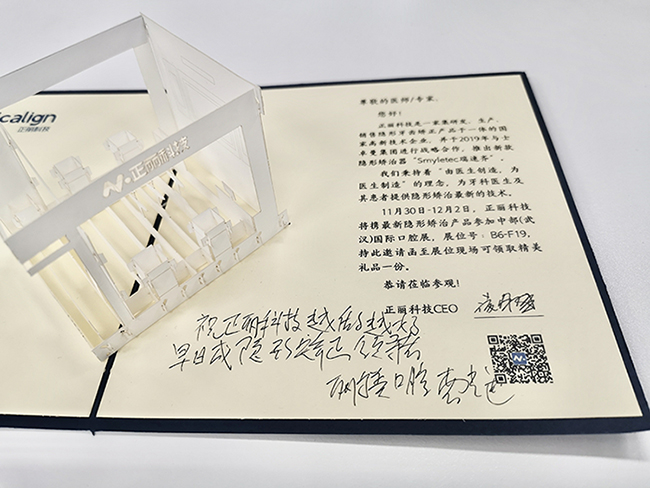 calign
正丽科技
N·正丽科技
尊敬的医师/专家，
您好！
正丽科技是一家集研发、生产、
销售隐形牙齿矫正产品于一体的国
家高新技术企业，并于2019年与士
卓曼集团进行战略合作，推出新款
隐形矫治器“Smyletec瑞速齐”。
我们秉持着“由医生创造，为
医生制造”的理念，为牙科医生及
其患者提供隐形矫治最新的技术。
11月30日-12月2日，正丽科技
将携最新隐形矫治产品参加中部(武
汉)国际口腔展，展位号：B6-F19，
持此邀请函至展位现场可领取精美
礼品一份。
恭请莅临参观！
正丽科技CEO
祝正丽科技越活越好
早日成隐形矫正领袖
口腔